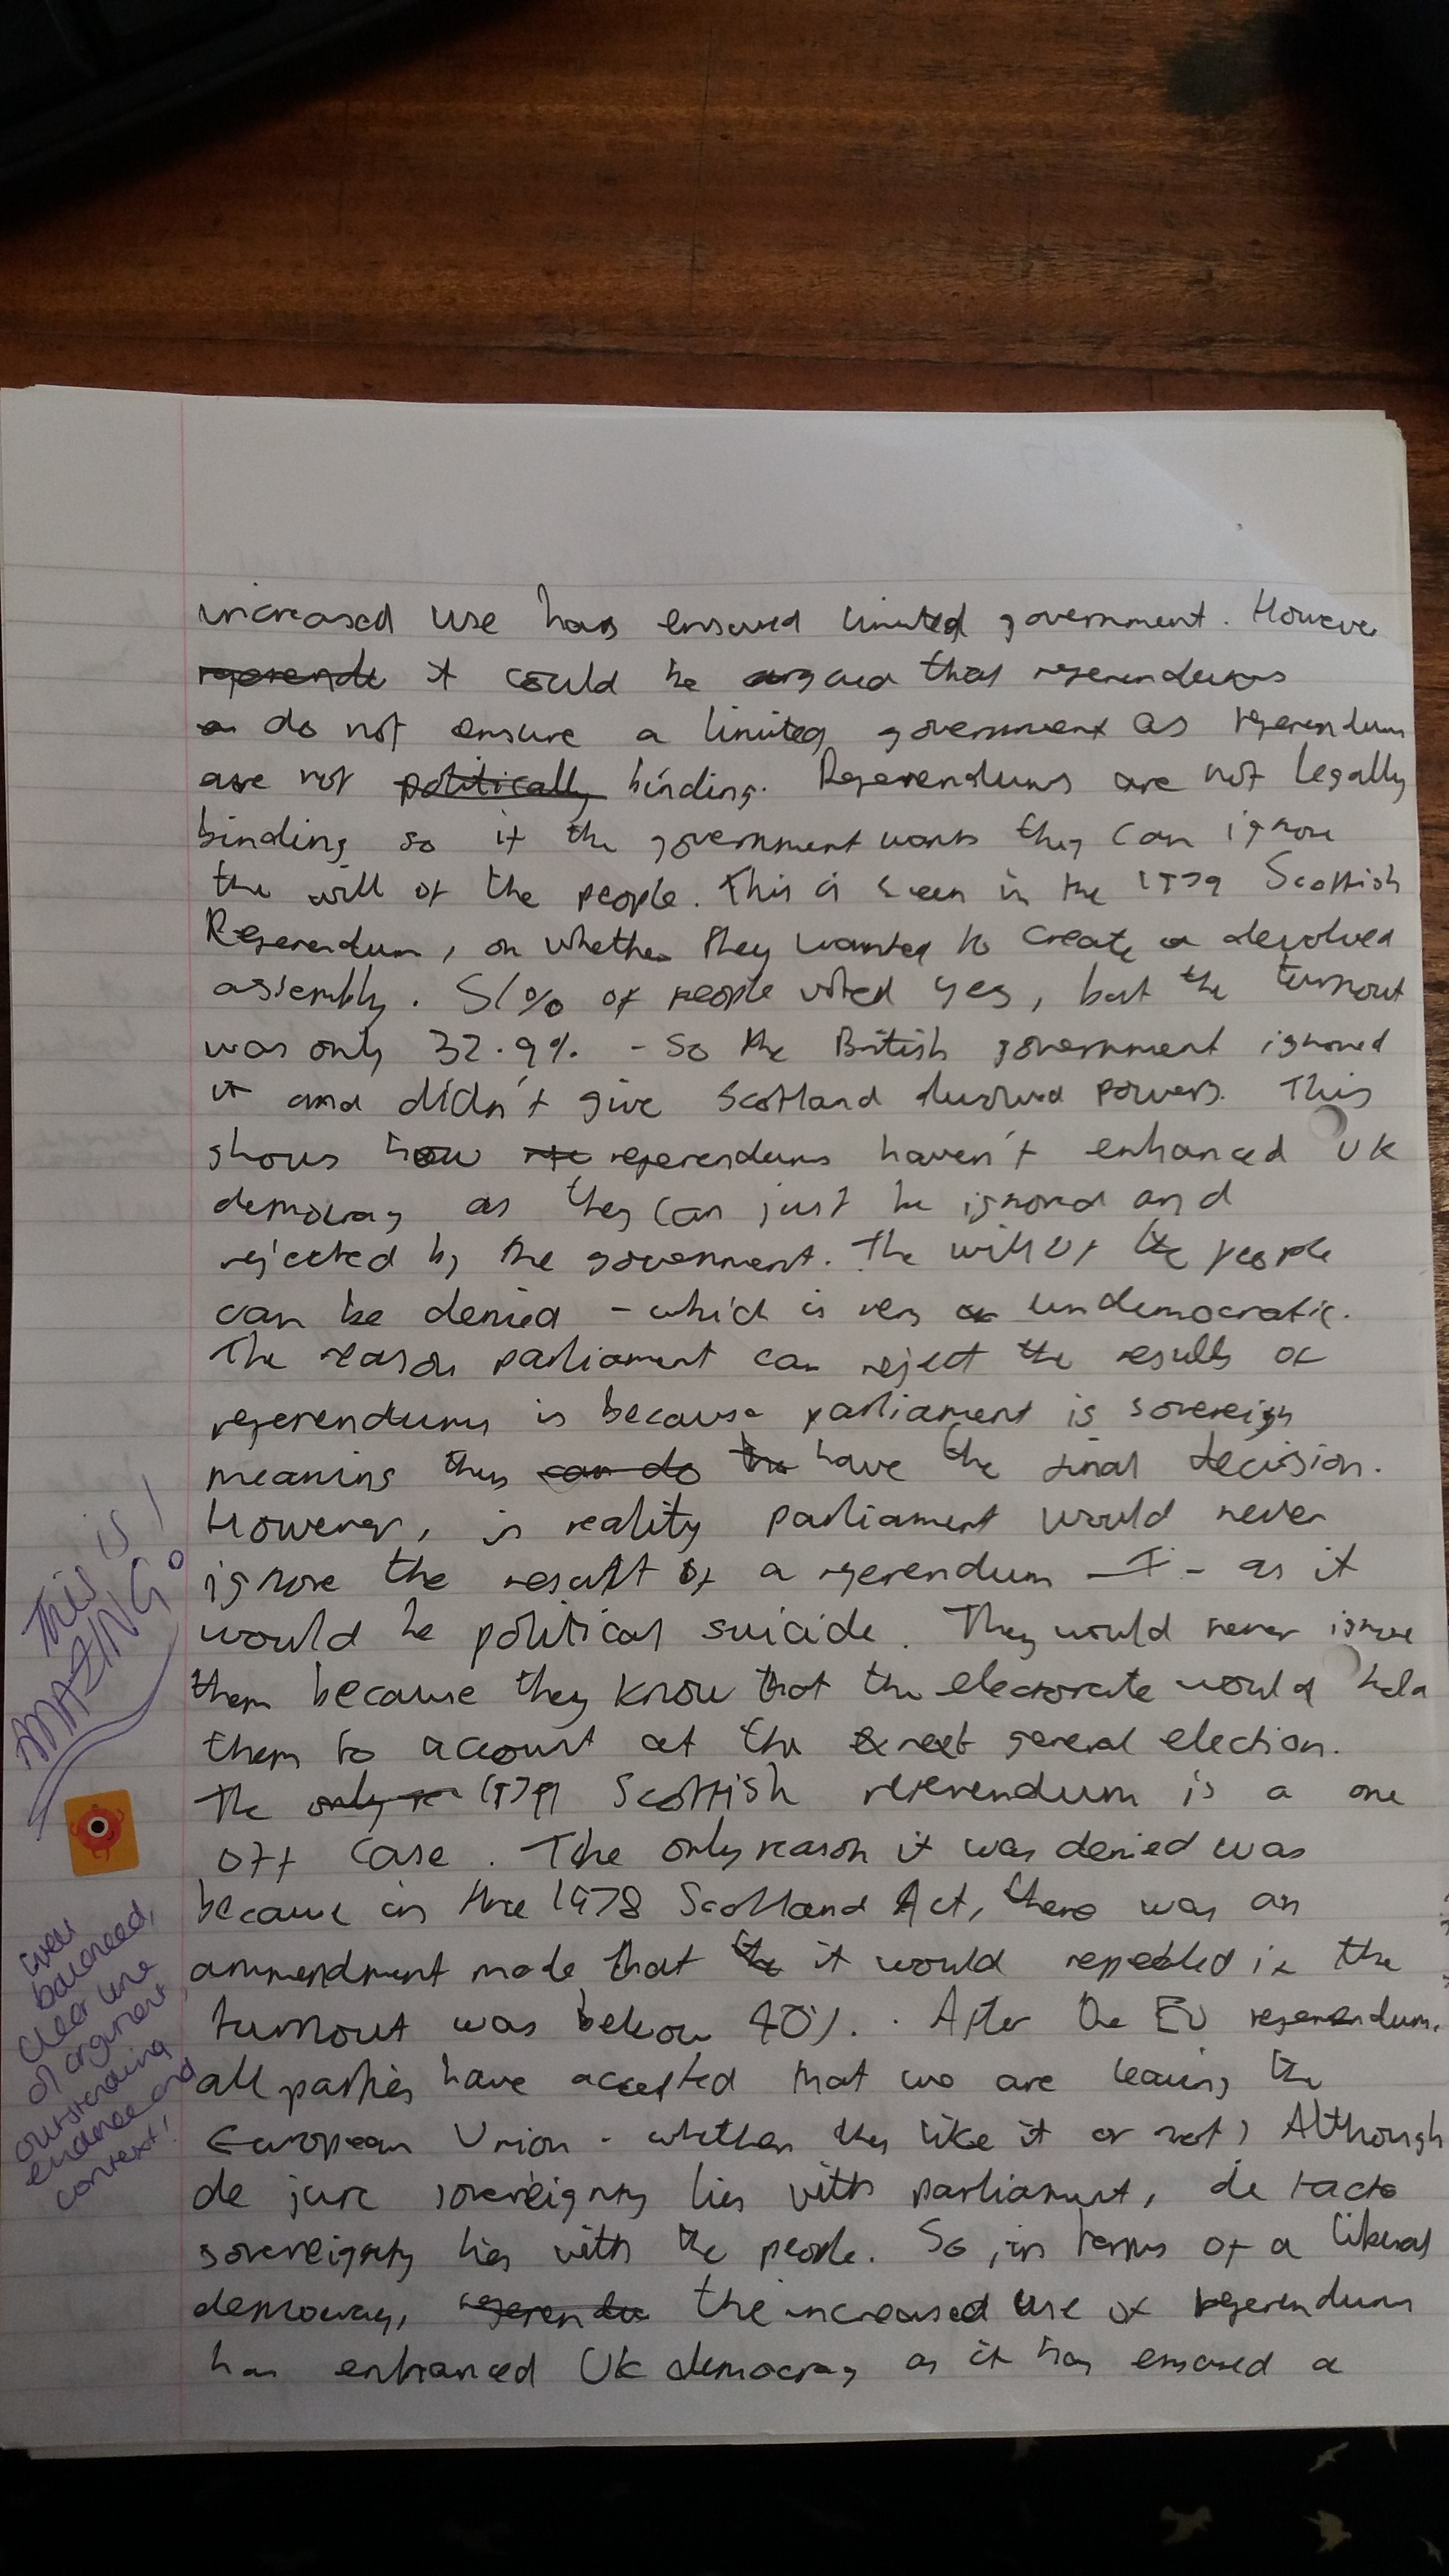 increased use has ensured limited government. However
referendu it could be argued that referendums
a do not ensure a limited government as referendum
are not politically binding. Referendums are not legally
binding so if the government wants they can ignore
the will of the people. This is seen in the 1979 Scottish
Referendum, on whether they wanted to create a devolved
assembly. 51% of people voted yes, but the turnout
was only 32.9% - so the British government ignored
it and didn't give Scotland devolved powers. This
shows how the referendums haven't enhanced UK
democracy as they can just be ignored and
rejected by the government. The will of the people
can be denied - which is very un undemocratic.
The reason parliament can reject the results of
referendums is because parliament is sovereign
meaning they can do the have the final decision.
However, in reality parliament would never
ignore the result of a referendum - I - as it
would be political suicide. They would never ignore
them because they know that the electorate would hold
them to account at the next general election.
The only re 1979 Scottish referendum is a one
off case. The only reason it was denied was
because in the 1978 Scotland Act, there was an
ammendment made that the it would repealed if the
turnout was below 40%. After the EU referendum,
all parties have accepted that we are leaving the
European Union - whether they like it or not) Although
de jure sovereignty lies with parliament, de facto
sovereignty lies with the people. So, in terms of a liberal
democracy, referendu the increased use of referendums
has enhanced UK democracy as it has ensured a
This is
AMAZING!
Well
balanced,
clear line
of argument,
outstanding
evidence and
context!